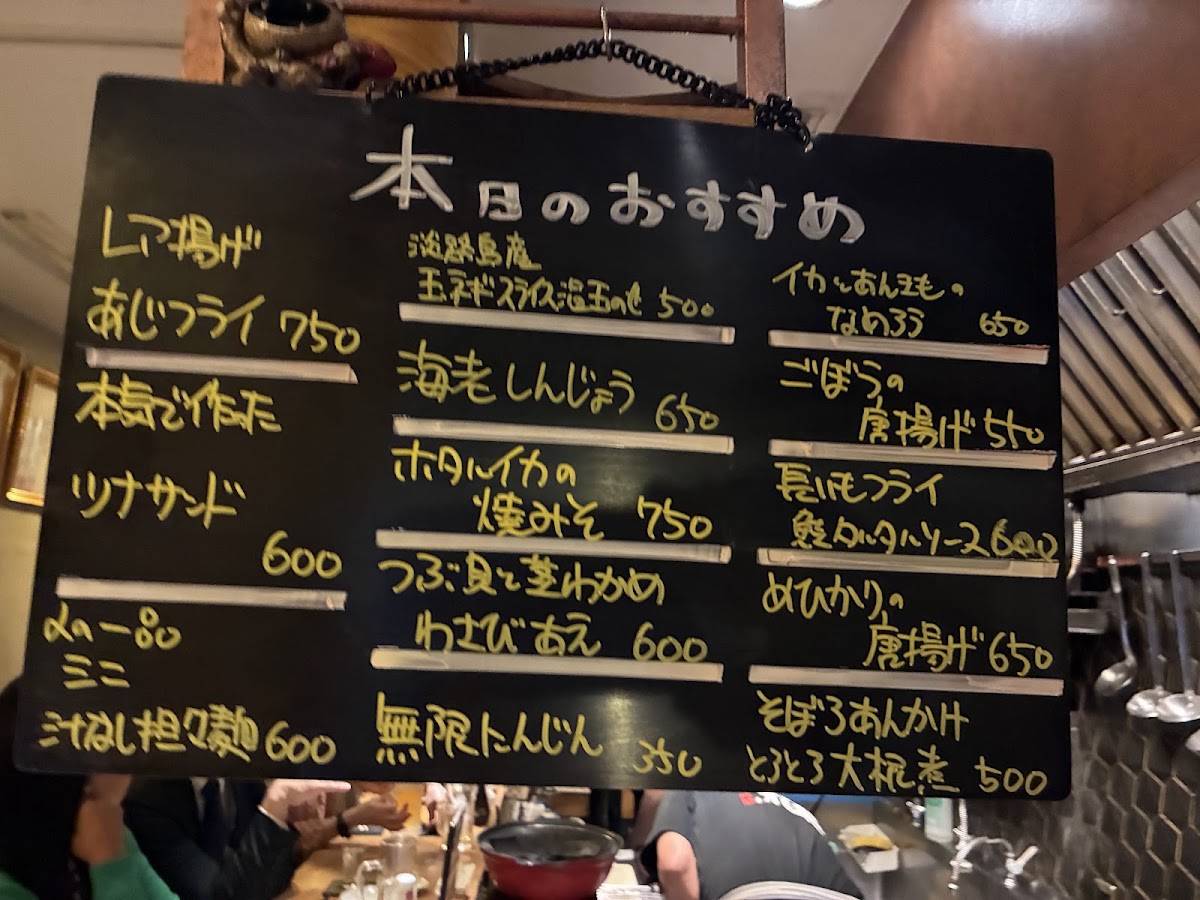 本日のおすすめ
レア揚げ
あじフライ 750
本気で作った
ツナサンド
600
〆の一品
ミニ
汁なし担々麺 600
淡路島産
玉ネギスライス温玉のせ 500
海老しんじょう 650
ホタルイカの
焼みそ 750
つぶ貝と茎わかめ
わさびあえ 600
無限にんじん 350
イカとあん肝の
なめろう 650
ごぼうの
唐揚げ 550
長いもフライ
タルタルソース 600
めひかりの
唐揚げ 650
そぼろあんかけ
とろとろ大根煮 500